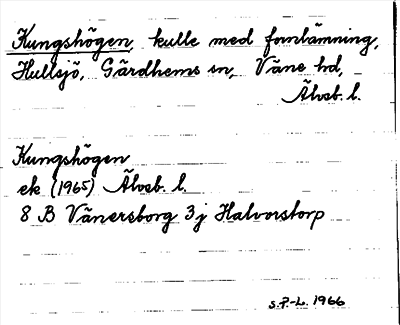 Kungshögen, kulle med fornlämning,
Hullsjö, Gärdhems sn, Väne hd,
Älvsb. l.
Kungshögen
ek (1965) Älvsb. l.
8 B Vänersborg 3j Halvorstorp
S.P.-L. 1966